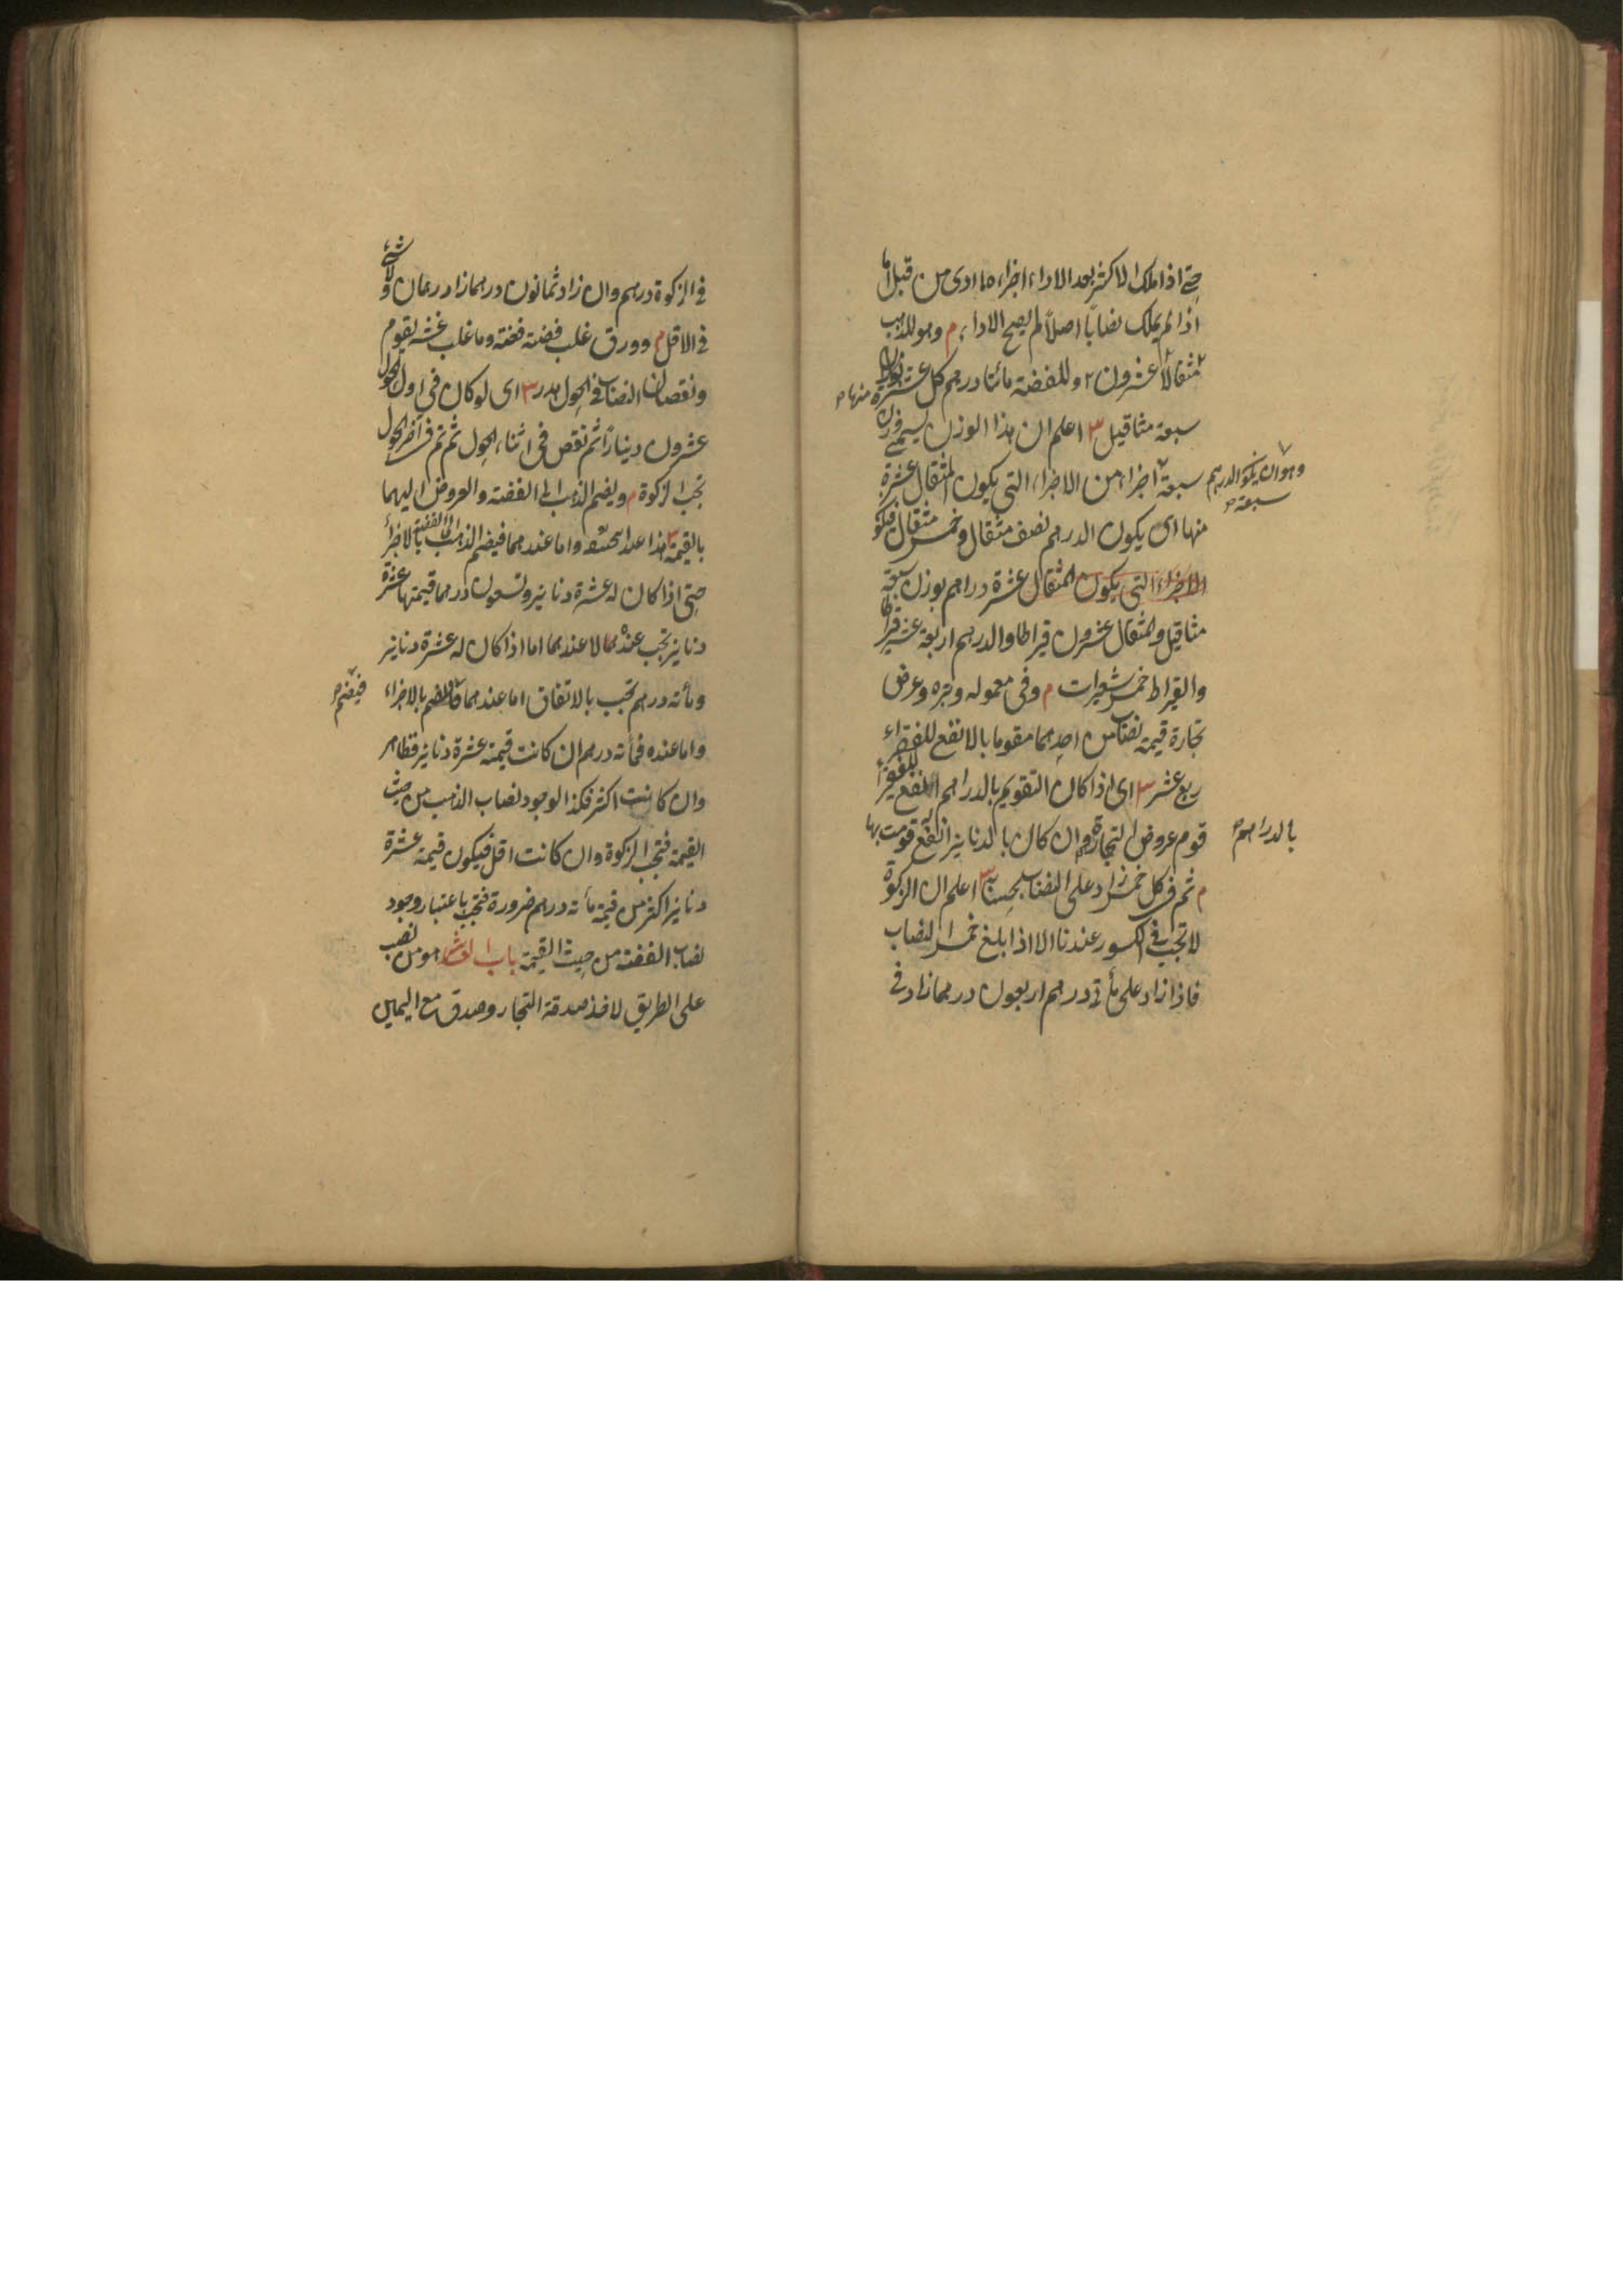 حتى اذا ملك الاكثر بعد الاداء اجزاه ما ادى من قبل اما
اذا لم يملك نصاباً اصلاً لم يصح الاداء م وهو للذهب
عشرون مثقالاً وللفضة مائتا درهم كل عشرة منها
سبعة مثاقيل اعلم ان هذا الوزن يسمى وزن
وهو ان يكون الدرهم سبعة اجزاء من الاجزاء التى يكون المثقال عشرة
منها اى يكون الدرهم نصف مثقال وخمس مثقال فيكون
الاجزاء التى يكون المثقال عشرة دراهم بوزن سبعة
مثاقيل والمثقال عشرون قيراطا والدرهم اربعة عشر قيراطا
والقيراط خمس شعيرات م وفى معموله وتبره وعرض
تجارة قيمته نصاب من احدهما مقوما بالانفع للفقراء
ربع عشر اى اذا كان التقويم بالدراهم انفع للفقير
قوم عروض التجارة بالدراهم وان كان بالدنانير انفع قومت بها
م ثم فى كل خمس زاد على النصاب بحسابه اعلم ان الزكوة
لا تجب فى الكسور عندنا الا اذا بلغ خمس النصاب
فاذا زاد على مأتى درهم اربعون درهما زاد فى
فى الزكوة درهم وان زاد ثمانون درهما زاد درهمان ولا شئ
فى الاقل م وورق غلب فضته فضة وما غلب غشه يقوم
ونقصان النصاب فى الحول هدر اى لو كان فى اول الحول
عشرون ديناراً ثم نقص فى اثناء الحول ثم تم فى اخر الحول
تجب الزكوة م ويضم الذهب الى الفضة والعروض اليهما
بالقيمة هذا عند واما عندهما فيضم الذهب الى الفضة بالاجزاء
حتى اذا كان له عشرة دنانير وتسعون درهما قيمتها عشرة
دنانير تجب عنده لا عندهما اما اذا كان له عشرة دنانير
ومأته درهم تجب بالاتفاق اما عندهما فللضم بالاجزاء
فيضم
واما عنده فمأته درهم ان كانت قيمته عشرة دنانير فظاهر
وان كانت اكثر فكذا لوجود نصاب الذهب من حيث
القيمة فتجب الزكوة وان كانت اقل فيكون قيمة عشرة
دنانير اكثر من قيمة مأته درهم ضرورة فتجب باعتبار وجود
نصاب الفضة من حيث القيمة باب العاشر هو من نصب
على الطريق لاخذ صدقة التجار وصدق مع اليمين